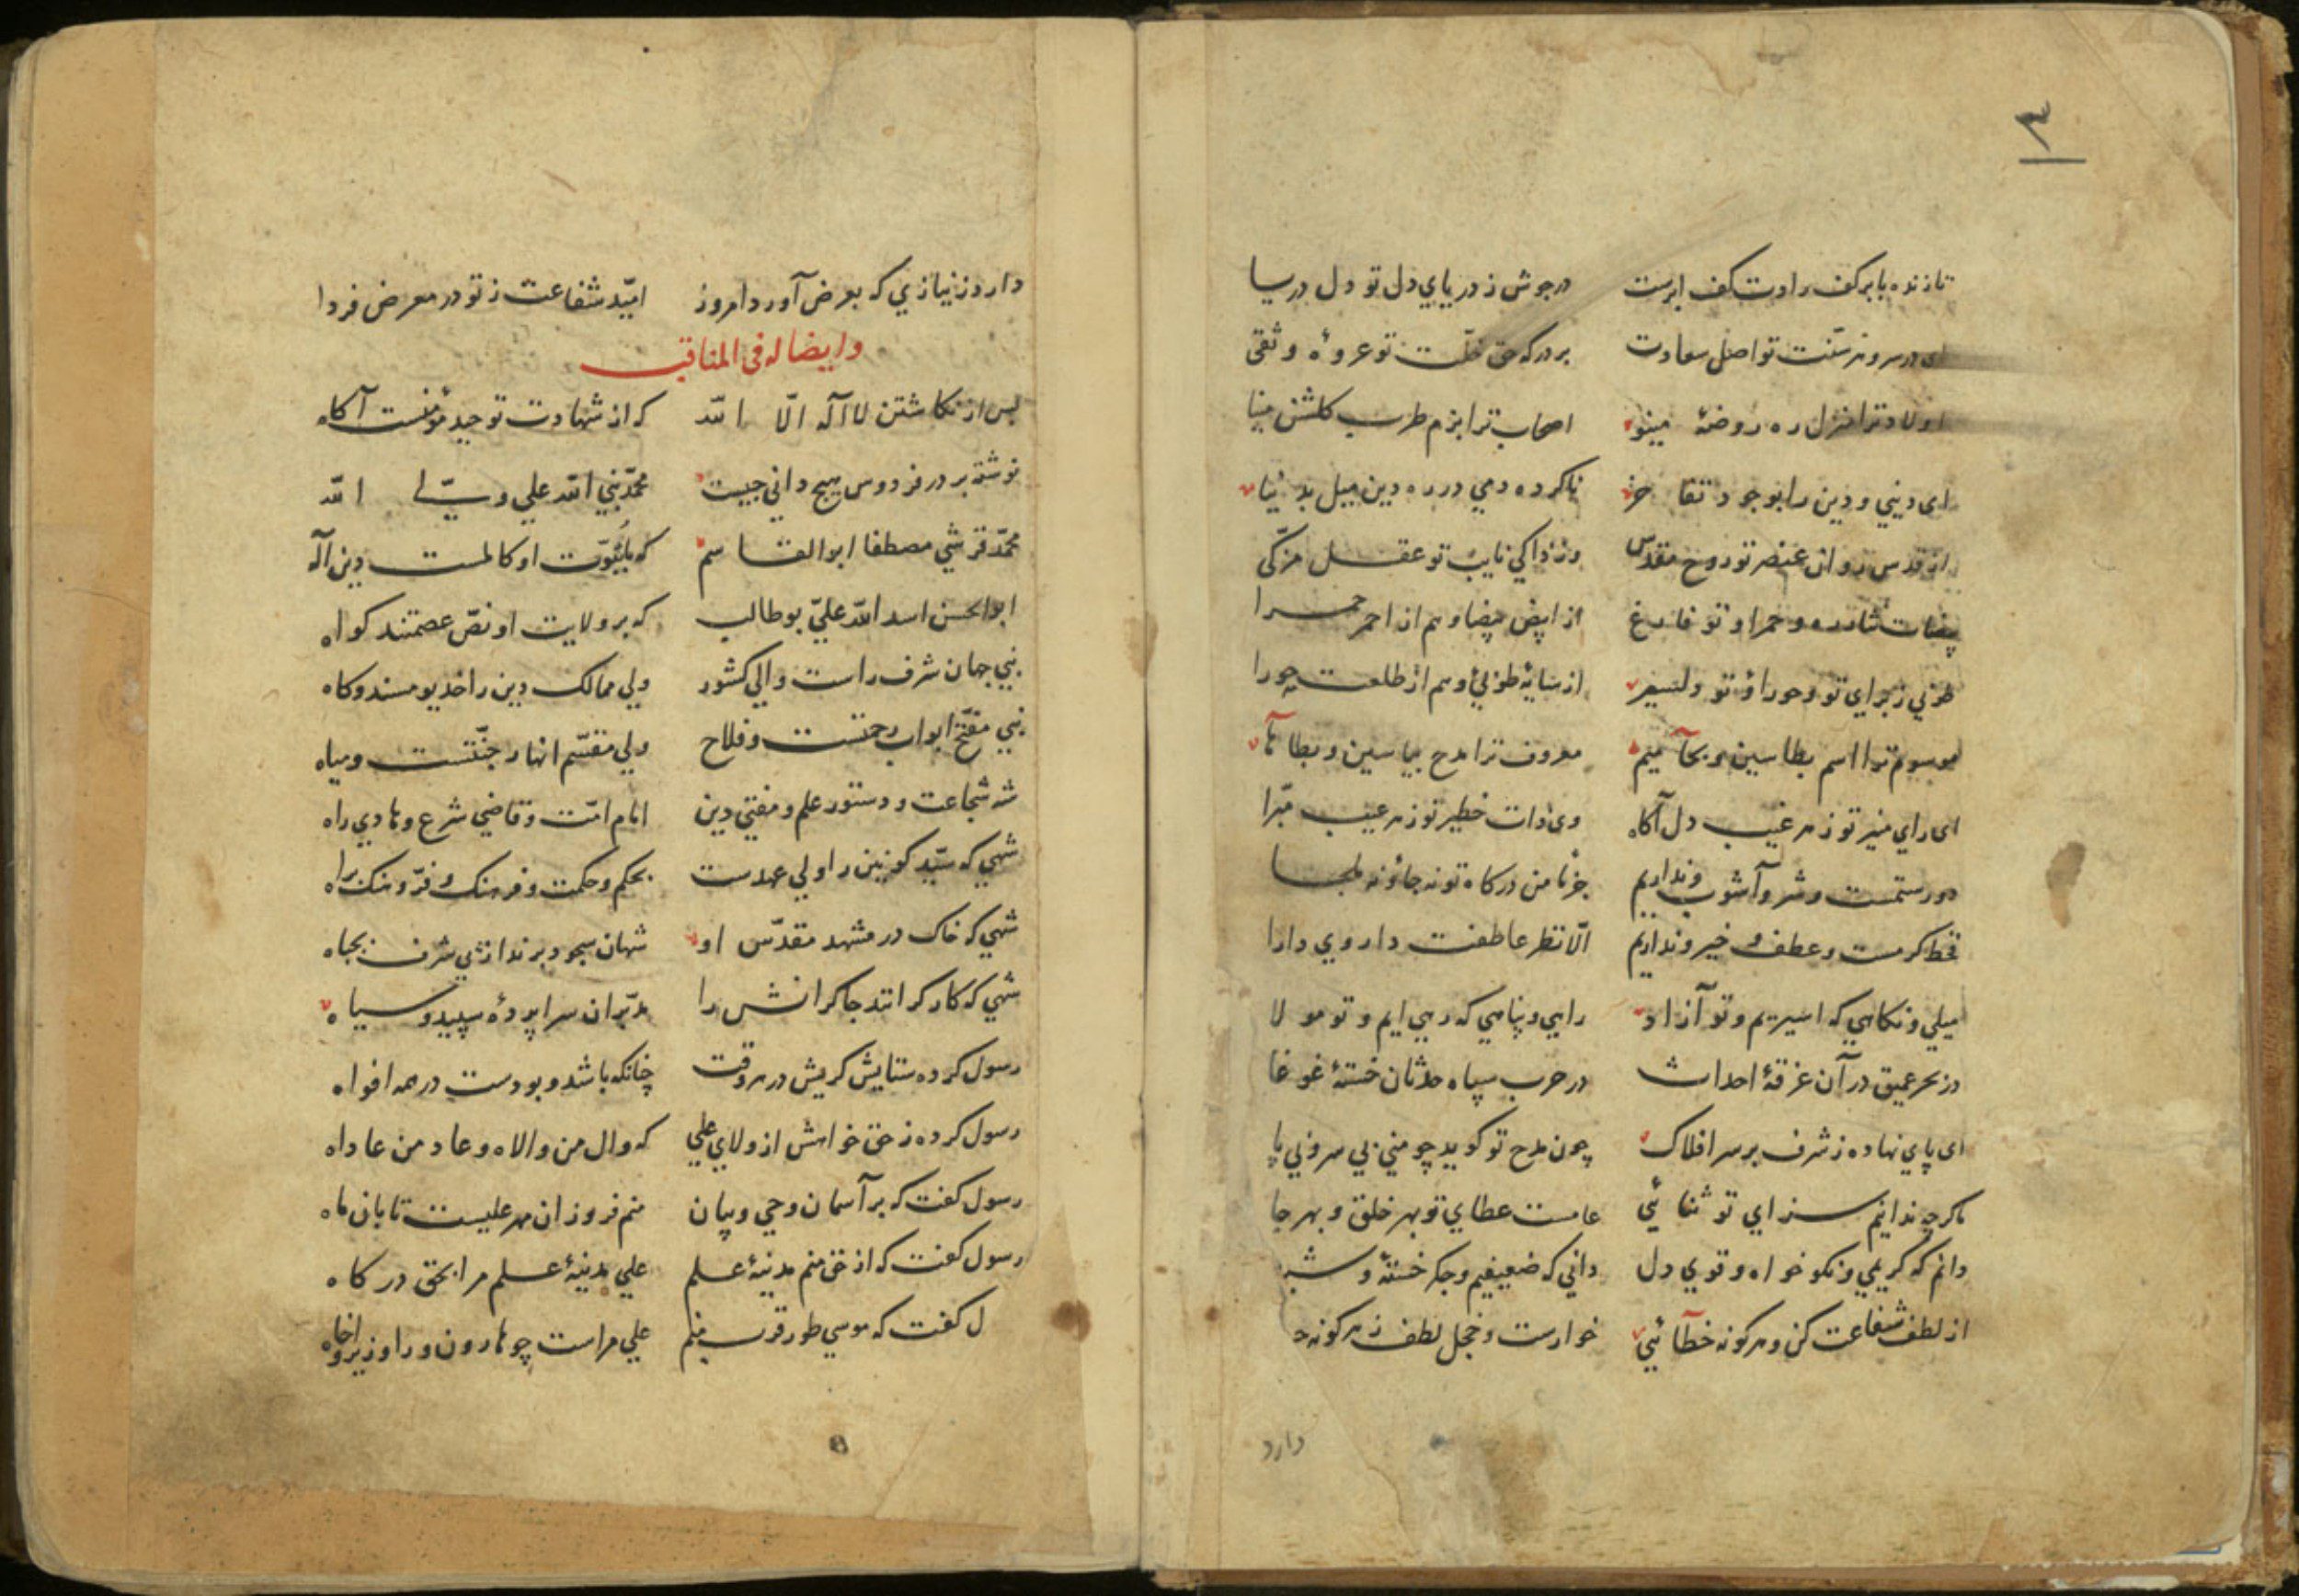 ۴
تازنده بابر کف رادت کف ابرست در جوش ز دریای دل تو دل دریا
ای در سر و تو سنّت تو اصل سعادت بر درکه حق خلّت تو عروهٔ وثقی
اولاد ترا منزل ره روضهٔ مینو اصحاب ترا بزم طرب کلشن مینا
ای دنیی و دین را بوجود تو تفاخر ناکرده دمی در ره دین میل بدنیا
از قدس روان عنصر تو روح مقدّس وز ذاکی نایب تو عقل مزکّی
بیضات نثار ره و حمرا و تو فارغ از ابیض بیضا و هم از احمر حمرا
طوبی ز برای تو و حورا و تو ولنسفر از سایهٔ طوبی و هم از طلعت حورا
موسوم ترا اسم بطاسین و بحآمیم معروف ترا مدح بیاسین و بطاها
ای رای منیر تو ز هر غیب دل آکاه وی ذات خطیر تو ز هر عیب مبرّا
دور ستمست و شر و آشوب و نداریم جز نامن درکاه تو نه جا و نه ملجا
قحط کرمست و عطف و خیر و نداریم الّا نظر عاطفت دار وی دارا
میلی و نکاهی که اسیریم و تو آزاد راهی و پناهی که رهی ایم و تو مولا
در بحر عمیق در آن غرقهٔ احداث در حرب سپاه حدثان خستهٔ غوغا
ای پای نهاده ز شرف بر سر افلاک چون مدح تو کوید چو منی بی سر و بی پا
ماکرچه ندانیم سزای تو ثنائی عامست عطای تو بهر خلق و بهر جا
دانم که کریمی و نکو خواه و قوی دل دانی که ضعیفیم و جکر خسته و
از لطف شفاعت کن و هر کونه خطائی خوارست و خجل لطف ز هر کونه
دارد
دارد ز نیازی که بعرض آورد امروز امیّد شفاعت ز تو در معرض فردا
وایضا له فی المناقب
پس از نکاشتن لا اله الّا الله که از شهادت توحید مؤمنست آکاه
نوشته بر در فردوس هیچ دانی چیست محمّد نبی الله علی ولیّ الله
محمّد قرشی مصطفا ابوالقاسم که با نبوّت او کاملست دین اله
ابوالحسن اسد الله علیّ بوطالب که بر ولایت او نصّ عصمتند کواه
نبی جهان شرف راست والی کشور ولی ممالک دین را خدیو مسند و کاه
نبی مفتّح ابواب رحمتست و فلاح ولی مقسّم انهار جنّتست و میاه
شه شجاعت و دستور علم و مفتی دین امام امّت و قاضی شرع و هادی راه
شهی که سیّد کونین را ولی عهدست بحکم و حکمت و فرهنک و فرّ و هنک براه
شهی که خاک در مشهد مقدّس او شهان سجود برند از پی شرف بجباه
شهی که کار کرانند چاکرانش را مدبّران سراپردهٔ سپید و سیاه
رسول کرده ستایش کریش در هر وقت چنانکه باشد و بودست در همه افواه
رسول کرده ز حق خواهش از ولای علی که وال من والاه و عاد من عاداه
رسول کفت که بر آسمان وحی و بیان منم فروزان مهر علیست تابان ماه
رسول کفت که از حق منم مدینهٔ علم علی مدینهٔ علم مرا بحق درکاه
ل کفت که موسی طور قرب منم علی مراست چو هارون ورا وزیر و اخاه